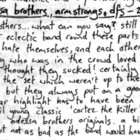 sa brothers, armstrongs, dfs - 2
others. what can you say? still
eclectic band round these parts
hate themselves, and each other
who was in the crowd loved
thought they sucked! certainly
the set which weren't up to the
but they always put on a good
ur highlight has to have been
young classic 'cortez the killer'
odessa brothers originals.
not as bad as the band were th